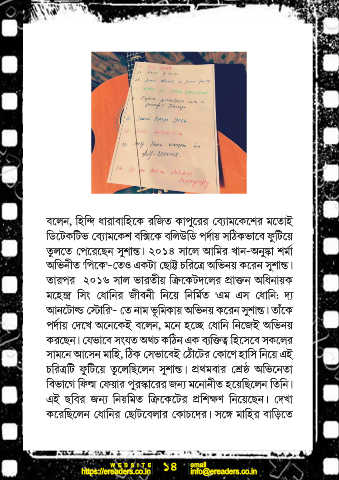 বলেন, হিন্দি ধারাবাহিকে রজিত কাপুরের ব্যোমকেশের মতোই
ডিটেকটিভ ব্যোমকেশ বক্সিকে বলিউডি পর্দায় সঠিকভাবে ফুটিয়ে
তুলতে পেরেছেন সুশান্ত। ২০১৪ সালে আমির খান-অনুষ্কা শর্মা
অভিনীত ‘পিকে’-তেও একটা ছোট্ট চরিত্রে অভিনয় করেন সুশান্ত।
তারপর ২০১৬ সাল ভারতীয় ক্রিকেটদলের প্রাক্তন অধিনায়ক
মহেন্দ্র সিং ধোনির জীবনী নিয়ে নির্মিত ‘এম এস ধোনি: দ্য
আনটোল্ড স্টোরি’- তে নাম ভূমিকায় অভিনয় করেন সুশান্ত। তাঁকে
পর্দায় দেখে অনেকেই বলেন, মনে হচ্ছে ধোনি নিজেই অভিনয়
করছেন। যেভাবে সংযত অথচ কঠিন এক ব্যক্তিত্ব হিসেবে সকলের
সামনে আসেন মাহি, ঠিক সেভাবেই ঠোঁটের কোণে হাসি নিয়ে এই
চরিত্রটি ফুটিয়ে তুলেছিলেন সুশান্ত। প্রথমবার শ্রেষ্ঠ অভিনেতা
বিভাগে ফিল্ম ফেয়ার পুরস্কারের জন্য মনোনীত হয়েছিলেন তিনি।
এই ছবির জন্য নিয়মিত ক্রিকেটের প্রশিক্ষণ নিয়েছেন। দেখা
করেছিলেন ধোনির ছোটবেলার কোচদের। সঙ্গে মাহির বাড়িতে
WEBSITE
https://ereaders.co.in
১৪
email
info@ereaders.co.in